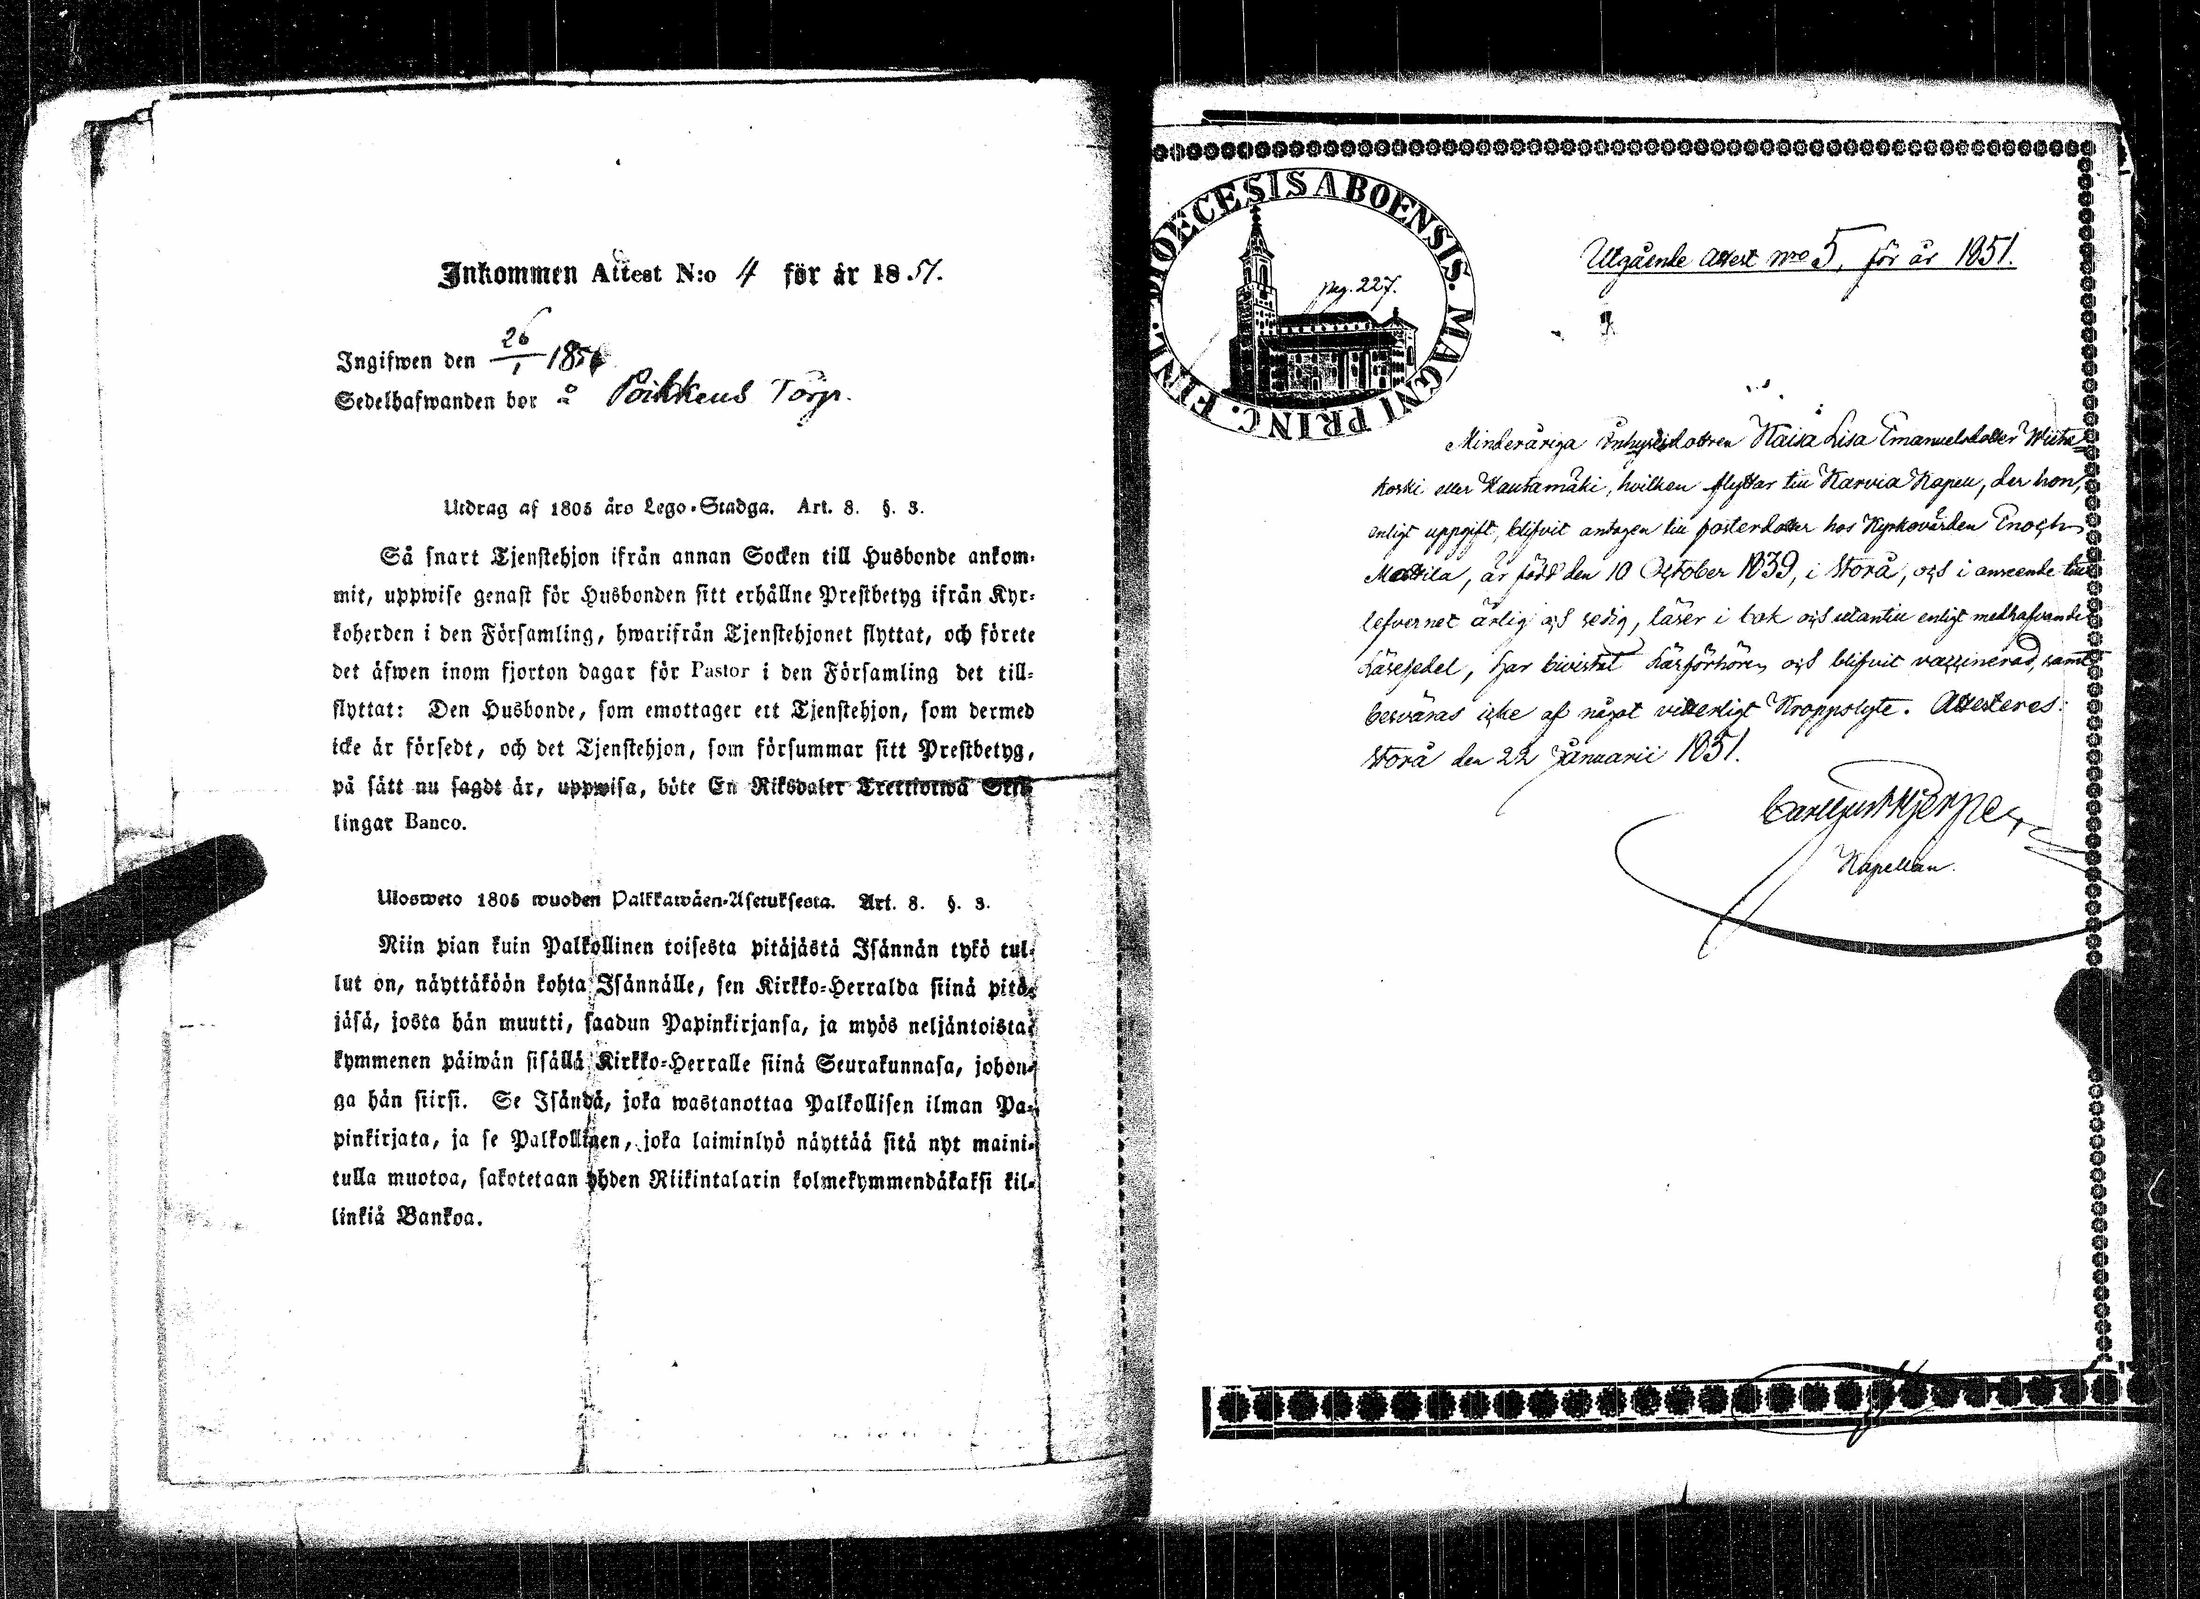 Inkommen Attest N:o 4 för år 1851.
Ingifwen den 26/1 1851
Sedelhafwanden bor å Poikkeus Torp.
Utdrag af 1805 års Lego-Stadga. Art. 8. §. 3.
Så snart Tjenstehjon ifrån annan Socken till Husbonde ankom-
mit, uppwise genast för Husbonden sitt erhållne Prestbetyg ifrån Kyr-
koherden i den Församling, hwarifrån Tjenstehjonet flyttat, och förete
det äfwen inom fjorton dagar för Pastor i den Församling det till-
flyttat: Den Husbonde, som emottager ett Tjenstehjon, som dermed
icke är försedt, och det Tjenstehjon, som försummar sitt Prestbetyg,
på sätt nu sagdt är, uppwisa, böte En Riksdaler Trettiotwå Skil-
lingar Banco.
Ulosweto 1805 wuoden Palkkawäen-Asetuksesta. Art. 8. §. 3.
Niin pian kuin Palkollinen toisesta pitäjästä Isännän tykö tul-
lut on, näyttäköön kohta Isännälle, sen Kirkko-Herralda siinä pitä-
jäsä, josta hän muutti, saadun Papinkirjansa, ja myös neljäntoista-
kymmenen päiwän sisällä Kirkko-Herralle siinä Seurakunnasa, johon-
ga hän siirsi. Se Isändä, joka wastanottaa Palkollisen ilman Pa-
pinkirjata, ja se Palkollinen, joka laiminlyö näyttää sitä nyt maini-
tulla muotoa, sakotetaan yhden Riikintalarin kolmekymmendäkaksi kil-
linkiä Bankoa.
DIOECESIS ABOENSIS. MAGNI PRINC. FINL.
pag. 227.
Utgående attest nro 5, för år 1851.
Minderåriga Inhysesdottren Kaisa Lisa Emanuelsdotter Wiita
koski eller Kautamäki, hvilken flyttar till Karvia Kapell, der hon,
enligt uppgift, blifvit antagen till fosterdotter hos Kyrkovärden Enoch
Mattila, är född den 10 October 1839, i Storå, och i anseende till
lefvernet ärlig och sedig, läser i bok och utantill enligt medhafvande
Läsesedel, har bivistat Läsförhören och blifvit vaccinerad, samt
besväras icke af något vitterligt Kroppslyte. Attesteres:
Storå den 22 Januarii 1851.
Kapellan.